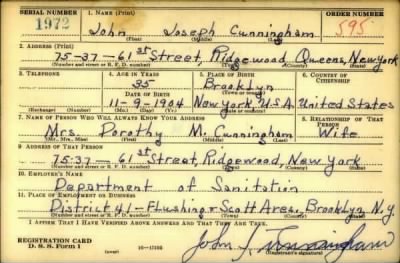 SERIAL NUMBER 1. NAME (Print) ORDER NUMBER
1972 John Joseph Cunningham 595
(First) (Middle) (Last)
2. ADDRESS (Print)
75-37-61st Street, Ridgewood Queens, New York
(Number and street or R. F. D. number) (Town) (County) (State)
3. TELEPHONE 4. AGE IN YEARS 5. PLACE OF BIRTH 6. COUNTRY OF CITIZENSHIP
35 Brooklyn
DATE OF BIRTH (Town or county)
11-9-1904 New York, U.S.A. United States
(Exchange) (Number) (Mo.) (Day) (Yr.) (State or country)
7. NAME OF PERSON WHO WILL ALWAYS KNOW YOUR ADDRESS 8. RELATIONSHIP OF THAT PERSON
Mrs. Dorothy M. Cunningham Wife
(Mr., Mrs., Miss) (First) (Middle) (Last)
9. ADDRESS OF THAT PERSON
75-37-61st Street, Ridgewood, New York
(Number and street or R. F. D. number) (Town) (County) (State)
10. EMPLOYER'S NAME
Department of Sanitation
11. PLACE OF EMPLOYMENT OR BUSINESS
District 41-Flushing & Scott Aves, Brooklyn N.Y.
(Number and street or R. F. D. number) (Town) (County) (State)
I AFFIRM THAT I HAVE VERIFIED ABOVE ANSWERS AND THAT THEY ARE TRUE.
REGISTRATION CARD
D. S. S. Form 1 John J. Cunningham
(Registrant's signature)